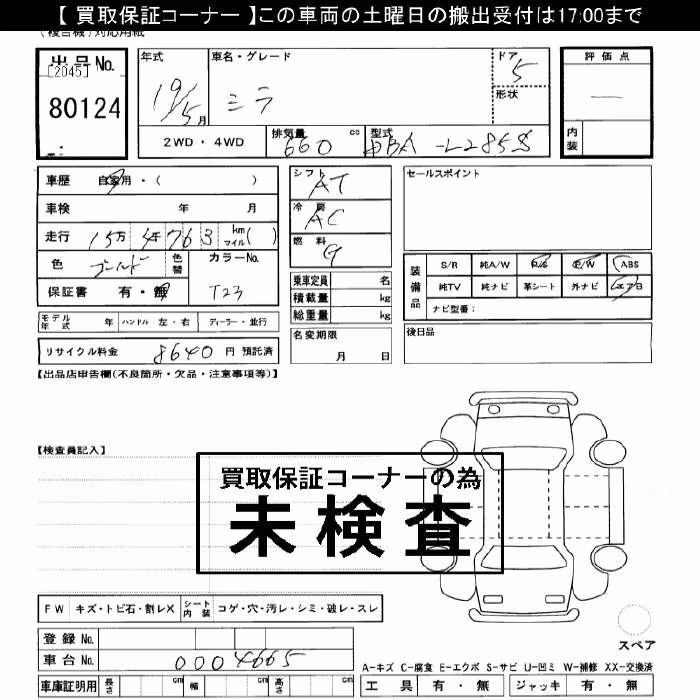 【 買取保証コーナー 】この車両の土曜日の搬出受付は17:00まで
(複合機)対応用紙
出品No.
[2045]
80124
年式
19/5月
車名・グレード
ミラ
ドア
5
形状
評価点
内装
2WD・4WD
排気量
660 cc
型式
DBA-L285S
車歴 自家用・( )
車検 年 月
走行 15万4千763 km マイル( )
色 ゴールド 色替 カラーNo.
保証書 有・無 T23
モデル年式 年 ハンドル 左・右 ディーラー・並行
リサイクル料金 8640 円 預託済
シフト AT
冷房 AC
燃料 G
乗車定員 名
積載量 kg
総重量 kg
名変期限
月 日
セールスポイント
装備品
S/R 純A/W P/S P/W ABS
純TV 純ナビ 革シート 外ナビ エアB
ナビ型番:
後日品
【出品店申告欄(不良箇所・欠品・注意事項等)】
【検査員記入】
買取保証コーナーの為
未検査
FW キズ・トビ石・割レX シート内装 コゲ・穴・汚レ・シミ・破レ・スレ
登録No.
車台No. 0004665
車庫証明用 長さ cm 幅 cm 高さ cm
スペア
A-キズ C-腐食 E-エクボ S-サビ U-凹ミ W-補修 XX-交換済
工具 有・無 ジャッキ 有・無